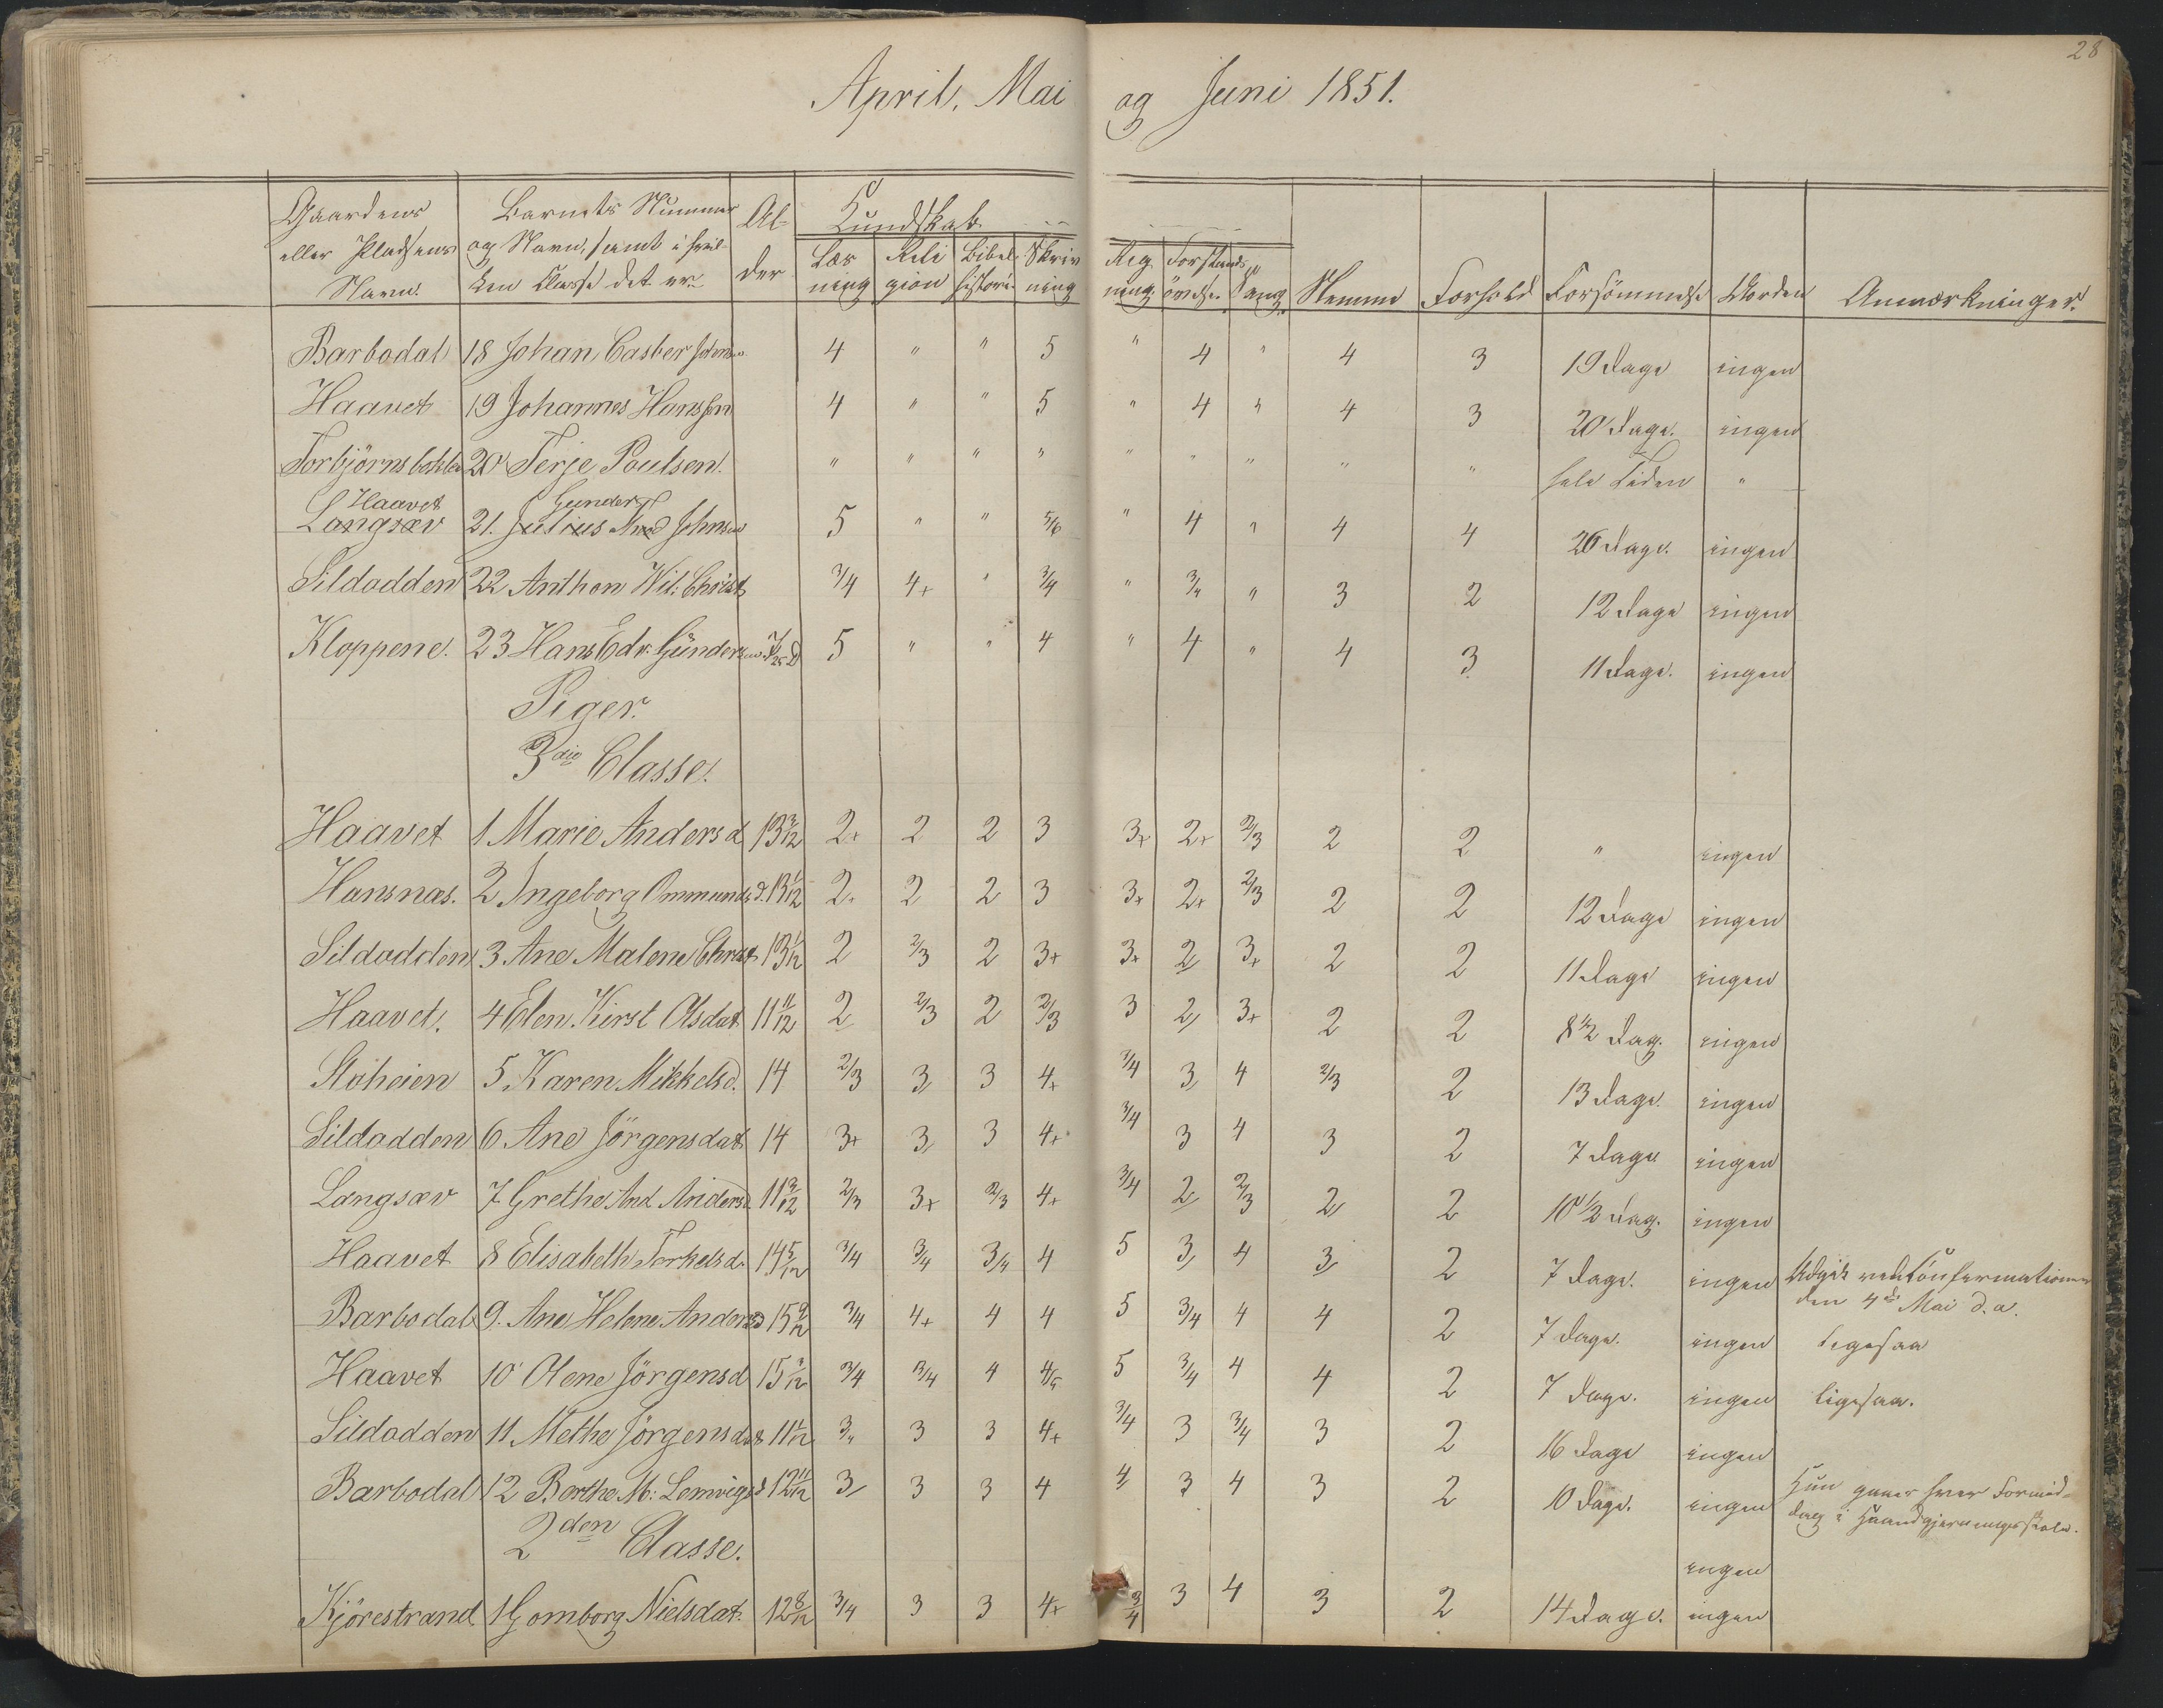 28
April, Mai og Juni 1851.
Gaardens eller Pladsens Navn. | Barnets Nummer og Navn, samt i hvilken Classe det er | Alder | Kundskab | Nemme | Forhold | Forsömmelse | Orden | Anmærkninger.
Læsning | Religion | Bibelhistorie | Skrivning | Regning | Forstandsövelse | Sang
Barbodal 18 Johan Casber 4 " " 5 " 4 " 4 3 19 Dage ingen
Haavet 19 Johannes Hanssen 4 " " 5 " 4 " 4 3 20 Dage. ingen
20 Terje Poulsen. " " " " " " " " " hele Tiden "
Haavet Gunder
Langsæv 21. Julius Johnsen 5 " " 5/6 " 4 " 4 4 26 Dage. ingen
Sildodden 22 Anthon Wil: Christ 3/4 4+ " 3/4 " 3/4 " 3 2 12 Dage ingen
Kloppene. 23 Hans Edv. Gündersen 5 " " 4 " 4 " 4 3 11 Dage. ingen
Piger.
3die Classe.
Haavet 1 Marie Andersd 13 3/12 2+ 2 2 3 3+ 2+ 2/3 2 2 " ingen
Hansnæs. 2 Ingeborg Ommundsd. 13 1/12 2. 2 2 3 3+ 2+ 2/3 2 2 12 Dage ingen
Sildodden 3 Ane Malene Christ 13 1/12 2 2/3 2 3+ 3+ 2 3+ 2 2 11 Dage ingen
Haavet. 4 Elen. Kirst Olsdat 11 11/12 2 2/3 2 2/3 3 2 3+ 2 2 8 1/2 Dag. ingen
Stoheien 5 Karen Mikkelsd. 14 2/3 3 3 4+ 3/4 3 4 2/3 2 13 Dage. ingen
Sildodden 6 Ane Jörgensdat 14 3+ 3 3 4+ 3/4 3 4 3 2 7 Dage ingen
Langsæv 7 Grethe And. Andersd 11 3/12 2/3 3+ 2/3 4+ 3/4 2 2/3 2 2 10 1/2 Dag. ingen
Haavet 8 Elisabeth Torkelsd. 14 5/12 3/4 3/4 3/4 4 5 3 4 3 2 7 Dage. ingen Udgik ved Confirmationen
den 4de Mai d.a.
Barbodal 9. Ane Helene Andersd 15 9/12 3/4 4+ 4 4 5 3/4 4 4 2 7 Dage. ingen ligesaa
Haavet 10 Olene Jörgensd 15 3/12 3/4 3/4 4 4/5 5 3/4 4 4 2 7 Dage. ingen ligesaa.
Sildodden 11 Methe Jörgensdat 11 1/12 3 3 3 4+ 3/4 3 3/4 3 2 16 Dage ingen
Barbodal 12 Berthe M: Lemvigsd 12 11/12 3 3 3 4 4 3 4 3 2 10 Dage. ingen Hun gaaer hver Formid-
dag i Haandgjerningsskole.
2den Classe. ingen
Kjörestrand 1 Gomborg Nielsdat. 12 8/12 3/4 3 3 4+ 3/4 3 4 3 2 14 Dage. ingen